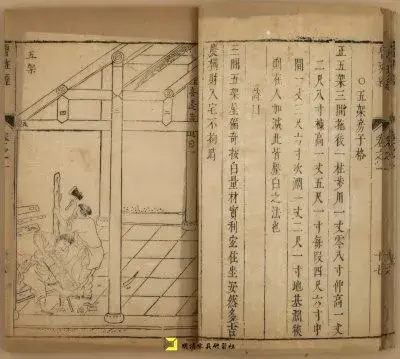 ○五架房子格
正五架三間拖後一柱步用一丈零八寸仲高一丈
二尺八寸棟高一丈五尺一寸每段四尺六寸中
間一丈三尺六寸次濶一丈二尺一寸地基濶狹
則在人加減此皆壓白之法也
詩曰
三間五架屋偏奇按白量材實利宜住坐安然多吉
慶橫財入宅不拘時
五架
魯班經